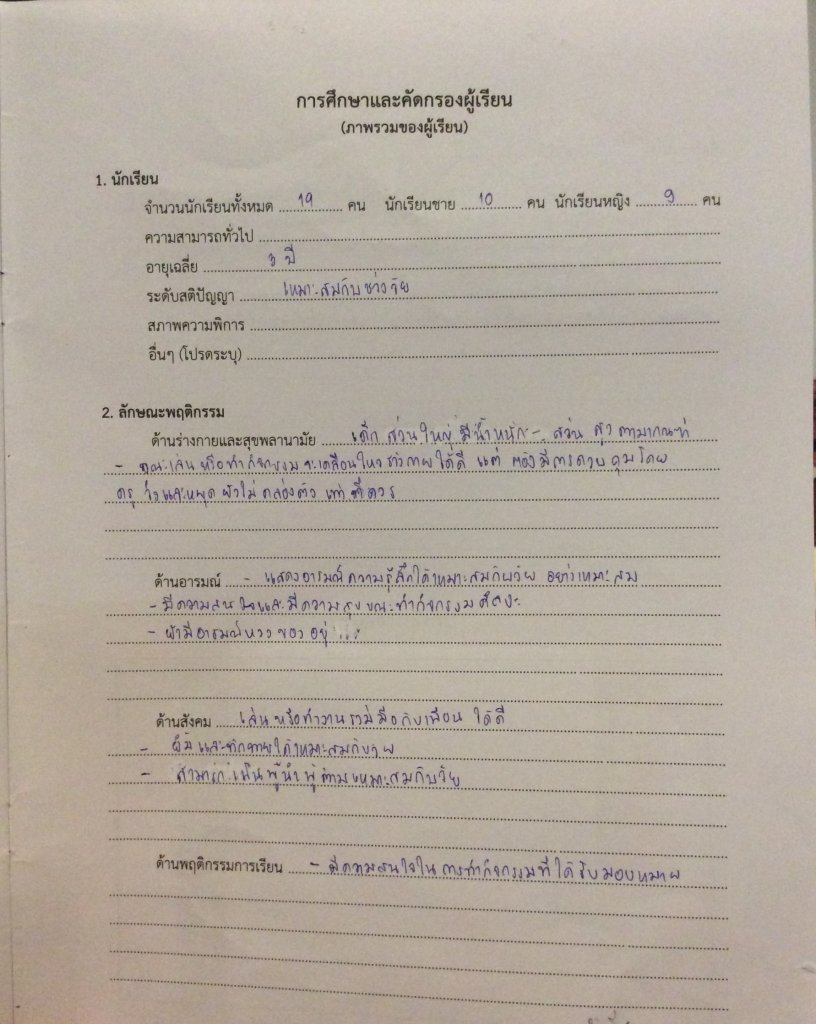 การศึกษาและคัดกรองผู้เรียน
(ภาพรวมของผู้เรียน)
1. นักเรียน
จำนวนนักเรียนทั้งหมด 19 คน นักเรียนชาย 10 คน นักเรียนหญิง 9 คน
ความสามารถทั่วไป
อายุเฉลี่ย 3 ปี
ระดับสติปัญญา เหมาะสมกับช่วงวัย
สภาพความพิการ
อื่นๆ (โปรดระบุ)
2. ลักษณะพฤติกรรม
ด้านร่างกายและสุขพลานามัย เด็กส่วนใหญ่มีน้ำหนัก - ส่วนสูงตามเกณฑ์
- ขณะเล่นหรือทำกิจกรรมจะเคลื่อนไหวร่างกายได้ดี แต่ต้องมีการควบคุมโดย
ครู วิ่งและหยุดยังไม่คล่องตัวเท่าที่ควร
ด้านอารมณ์ - แสดงอารมณ์ความรู้สึกได้เหมาะสมกับวัย อย่างเหมาะสม
- มีความสนใจและมีความสุขขณะทำกิจกรรมศิลปะ
- ยังมีอารมณ์หวงของอยู่
ด้านสังคม เล่นหรือทำงานร่วมมือกับเพื่อนได้ดี
- ยิ้มและทักทายได้เหมาะสมกับวัย
- สามารถเป็นผู้นำผู้ตามเหมาะสมกับวัย
ด้านพฤติกรรมการเรียน - มีความสนใจในการทำกิจกรรมที่ได้รับมอบหมาย